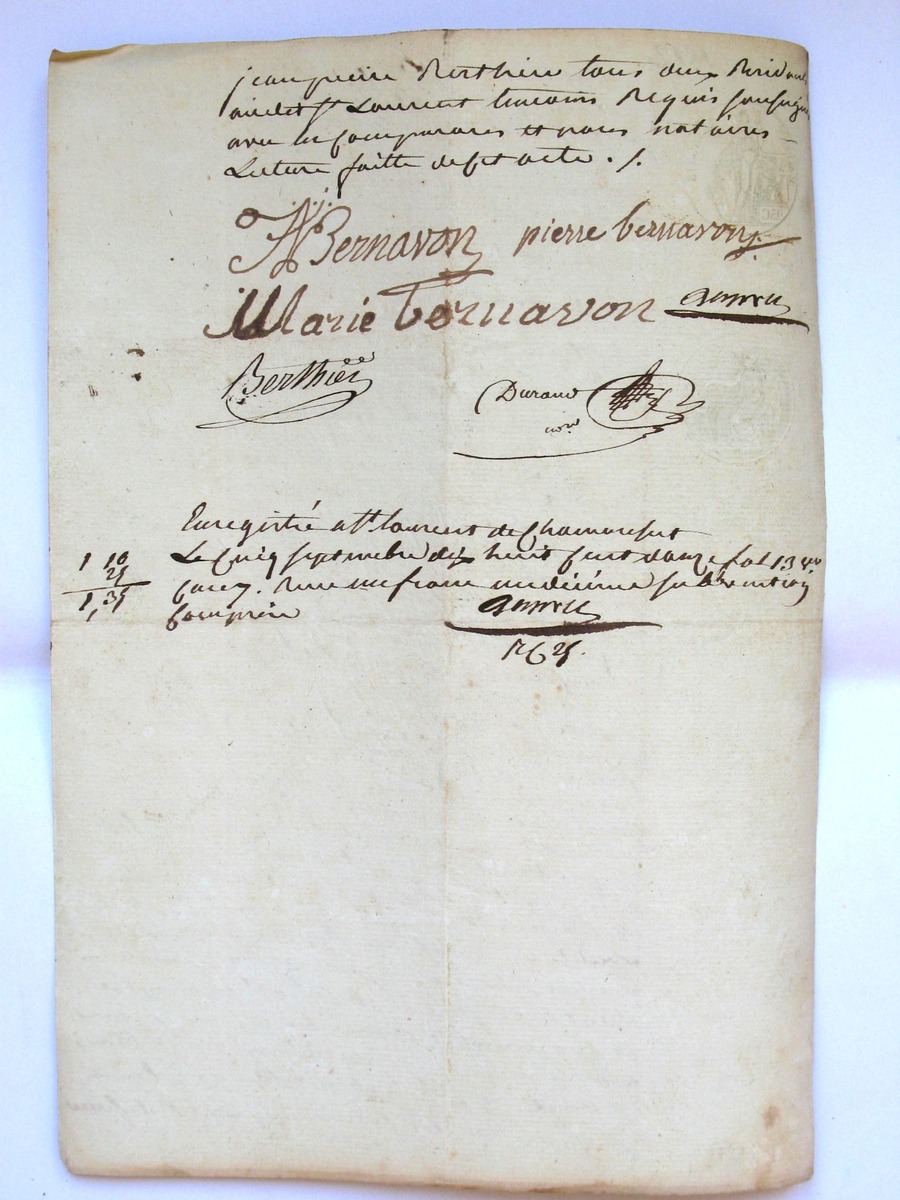 jean pierre Berthier tous deux Residants
audit St Laurent temoins Requis soussignés
avec les Comparans et nous notaires
Lecture faitte de Cet acte . /.
Bernavon pierre bernavon
Marie bernavon
Berthier
Durand
nore
Enregistré a St laurent de Chamousset
Le Cinq septembre dix huit Cent douze fol 13 vo
1 10
Case 7. Reçu un franc un decime subvention
25
Comprise
1,35
1 C 25.